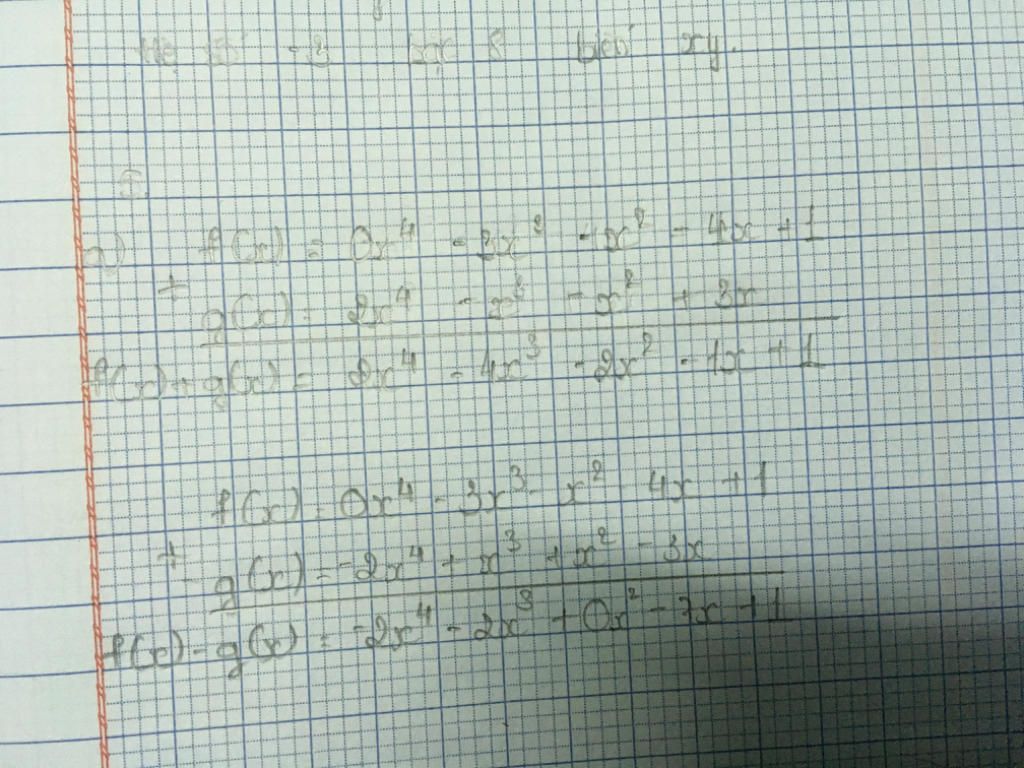 Hệ số -3 bậc 8 biến xy.
5.
a) f(x) = 0x⁴ - 3x³ - x² - 4x + 1
+ g(x) = 2x⁴ - x³ - x² + 3x
f(x) + g(x) = 2x⁴ - 4x³ - 2x² - 1x + 1
f(x) = 0x⁴ - 3x³ - x² - 4x + 1
+ - g(x) = -2x⁴ + x³ + x² - 3x
f(x) - g(x) = -2x⁴ - 2x³ + 0x² - 7x + 1